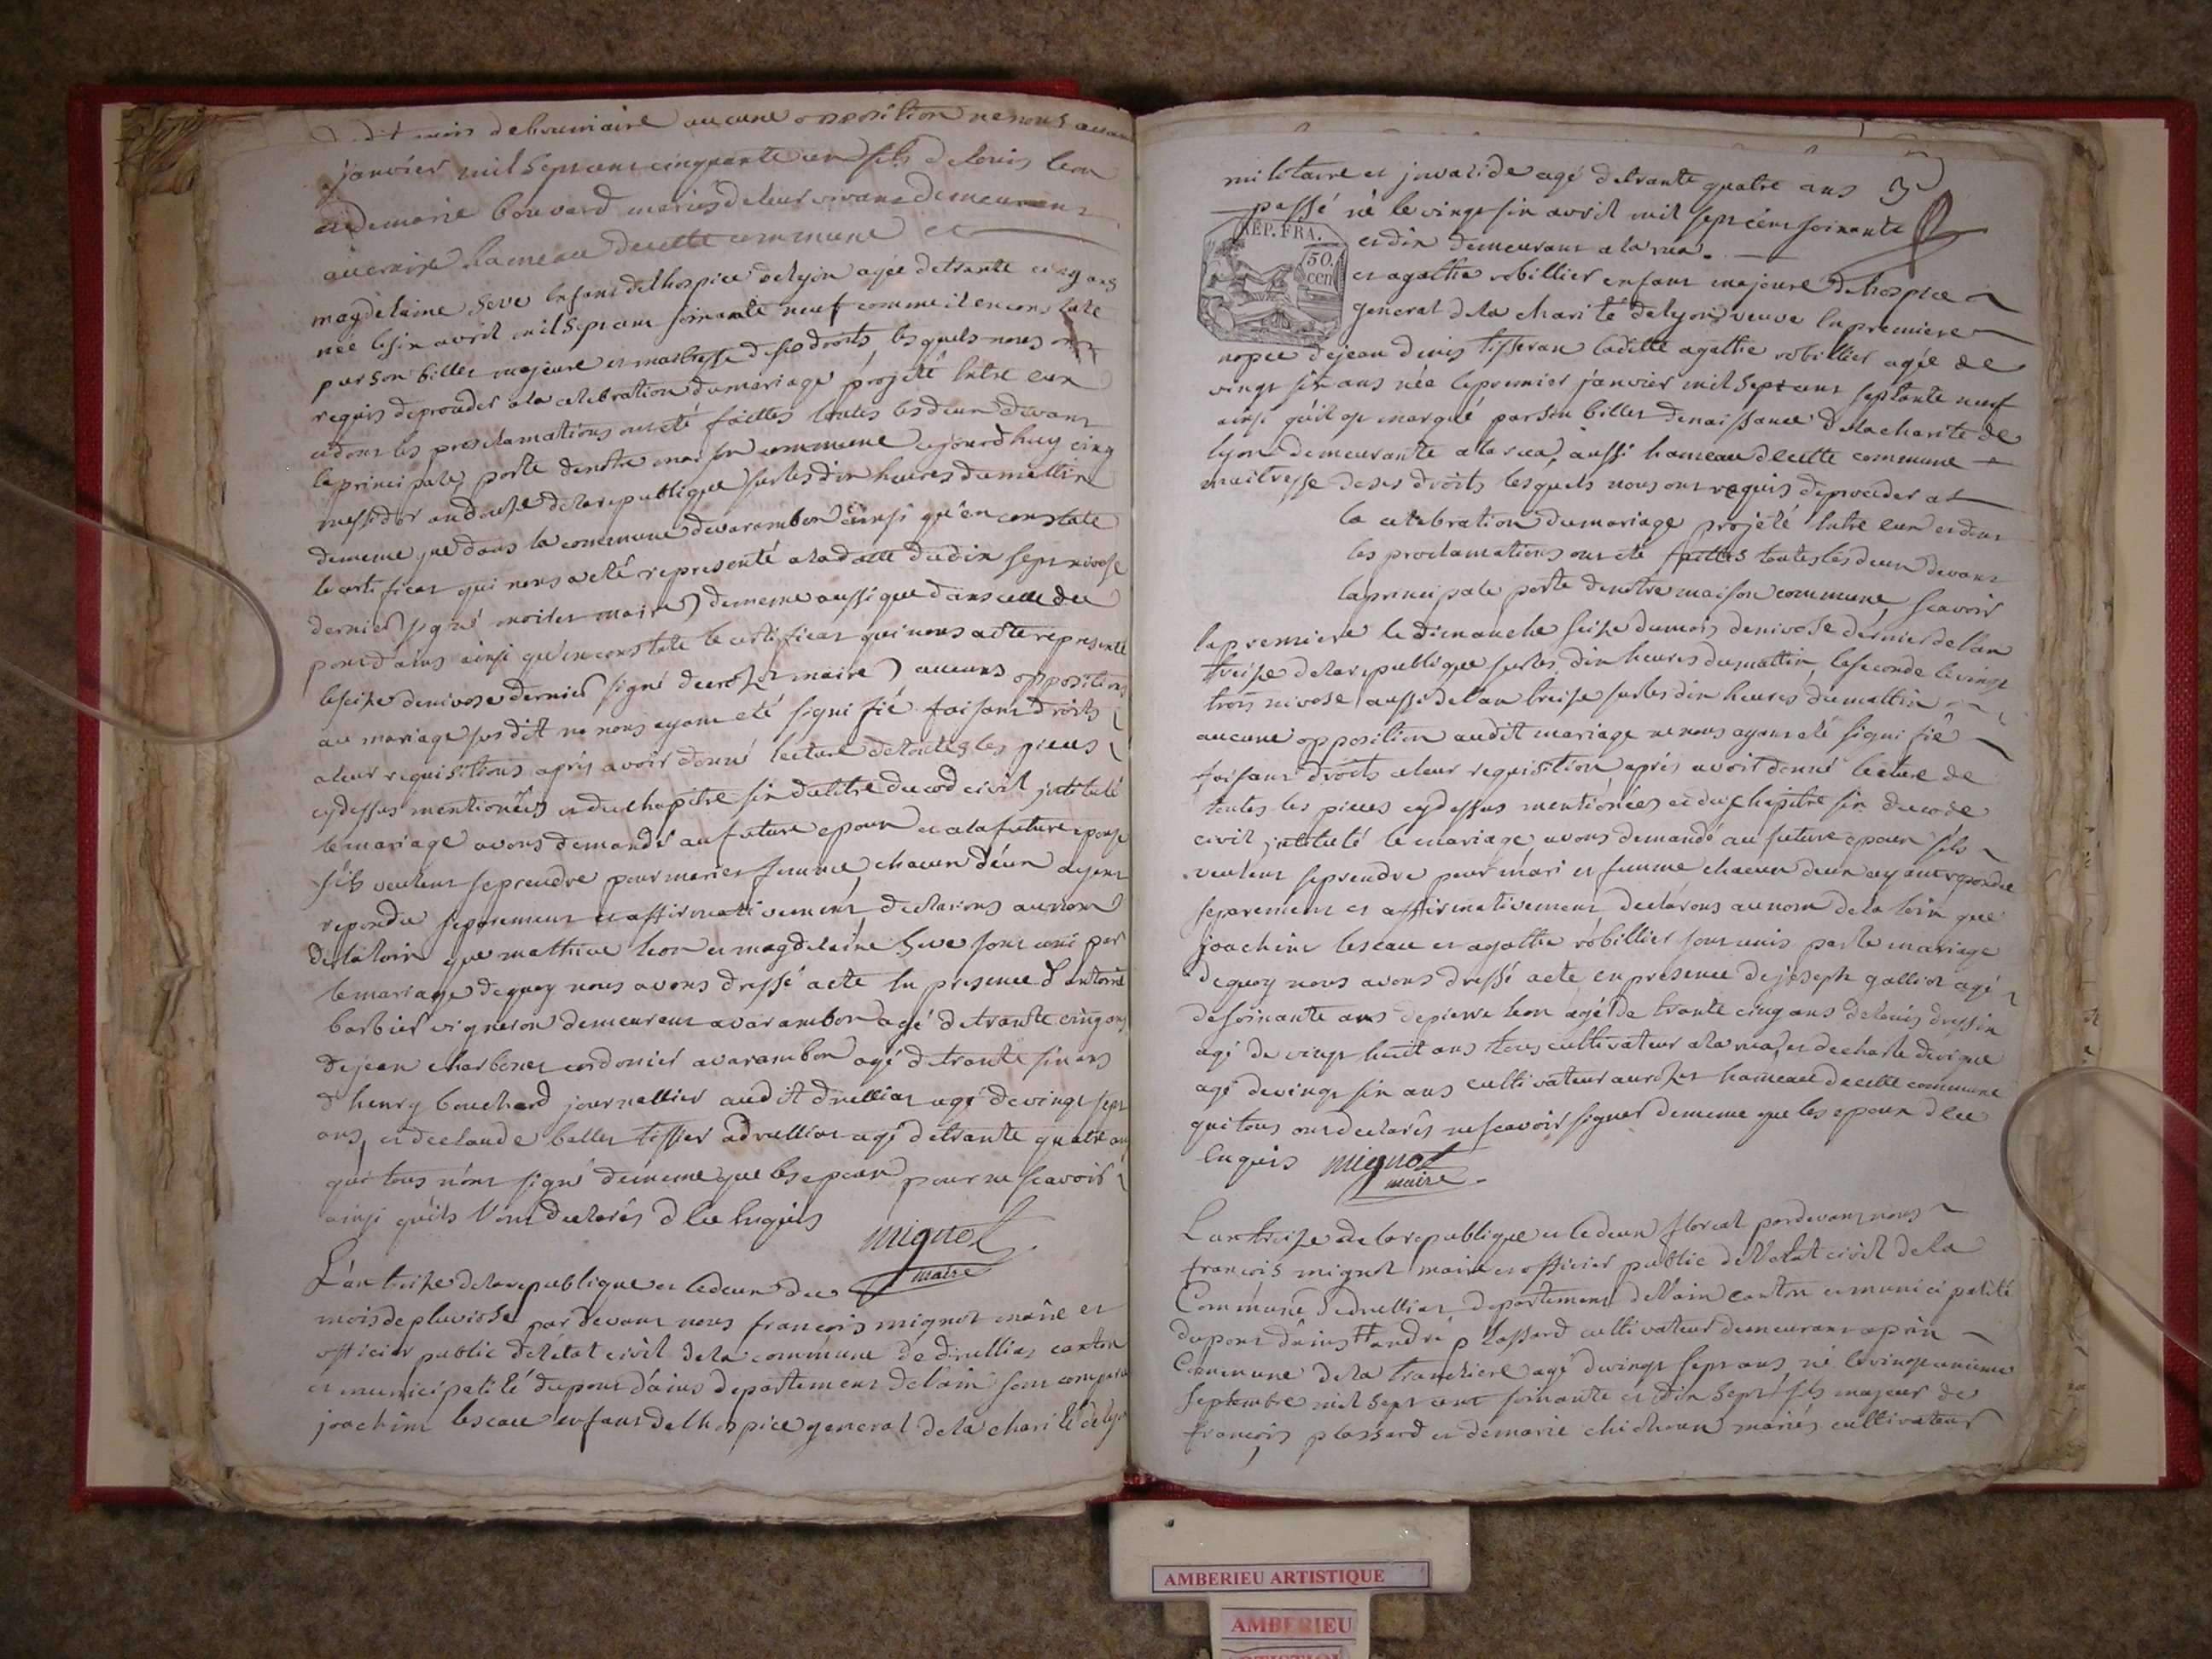 dit mois de brumaire aucune opposition ne nous ayant
janvier mil sept cent cinquante un fils de louis leon
et demarie bouvard mariés deleur vivant demeurant
hameau decette commune et
magdelaine seve enfant delhospice delyon agée detrante cinq ans
née lesix avril mil sept cent soixante neuf comme il en constate
par son billet majeure et maitresse deses droits, lesquels nous ont
requis deproceder ala celebration dumariage projeté entre eux
et dont les proclamations ont été faittes toutes les deux devant
la principale porte denotre maison commune
messidor an douze delarepublique sur les dix heures du mattin
dememe que dans la commune devarambon ainsi qu'en constate
le certificat qui nous a eté representé ala datte dudix sept nivose
dernier signé maire dememe aussi que dans celle du
pont d'ains ainsi qu'en constate le certificat qui nous a eté representé
leseize denivose dernier signé maire aucuns oppositions
au mariage susdit ne nous ayant eté signifié faisant droits
aleur requisitions apris avoir donné lecture detoutes les pieces
cydessus mentionées et duchapitre six dutitre ducod civil intitulé
lemariage avons demandé au future epoux et ala future epouse
s'ils veulent seprendre pour mari et femme, chacun d'eux ayant
repondu séparement et affirmativement declarons aunom
delaloix que mathieu leon et magdelaine seve sont uni par
lemariage dequoy nous avons dressé acte en presence d'antoine
barbier vigneron demeurant avarambon agé detrante cinq ans
dejean charbonet cordonier avarambon agé detrante six ans
d'henry bouchard journallier audit druillat agé devingt sept
ans, et declaude ballet tissier adruillat agé detrante quatre ans
qui tous n'ont signé dememe que les epoux pour ne scavoir
ainsi qu'ils l'ont declarés dece enquis
mignot
maire
L'an treize delarepublique et ledeux du
mois depluviose pardevant nous françois mignot maire et
officier public del'état civil dela commune de druillat canton
et municipalité dupont d'ains departement delain sont comparu
joachim leseau enfant delhospice general dela charité delyon
militaire et invalide agé detrante quatre ans
passé né le vingt six avril mil sept cent soixante
REP. FRA.
50.
cen
et dix demeurant ala rua.
et agathe robillier enfant majeure delhospice
general dela charité delyon veuve en premiere
nopce dejean denis tisseran ladille agathe robillier agée de
vingt six ans née lepremier janvier mil sept cent septante neuf
ainsi qu'il est marqué par son billet denaissance delacharité de
lyon demeurante ala rua, aussi hameau decette commune
maitresse deses droits lesquels nous ont requis deproceder a
la celebration dumariage projeté entre eux et dont
les proclamations ont eté faittes toutes les deux devant
laprincipale porte denotre maison commune, scavoir
la premiere le dimanche seize dumois denivose dernier delan
treize delarepublique sur les dix heures dumattin, laseconde levingt
trois nivose aussi delan treize sur les dix heures dumattin
aucune opposition audit mariage ne nous ayant eté signifié
faisant droits aleur requisition, aprés avoir donné lecture de
toutes les pieces cydessus mentionées et du chapitre six ducode
civil intitulé le mariage, avons demandé au future epoux s'ils
veulent seprendre pour mari et femme chacun deux ayant repondu
seprement et affirmativement declarons aunom dela loix que
joachim leseau et agathe robillier sont unis parle mariage
dequoy nous avons dressé acte en presence dejoseph galliot agé
desoixante ans depierre leon agé de trante cinq ans delouis dressin
agé de vingt huit ans tous cultivateur ala rua, et decharle devigue
agé devingt six ans cultivateur hameau decette commune
qui tous ont declarés nescavoir signer dememe que les epoux dece
enquis mignot
maire
L'an treize delarepublique et ledeux floreal pardevant nous
françois mignot maire et officier public del'etat civil dela
Commune dedruillat departement del'ain canton et municipalité
dupont d'ains andré plassard cultivateur demeurant aprin
Commune dela tranchere agé devingt sept ans né levingt unieme
septembre mil sept cent soixante et dix sept fils majeur de
françois plassard et demarie mariés cultivateur
AMBERIEU ARTISTIQUE
AMBERIEU
ARTISTIQUE